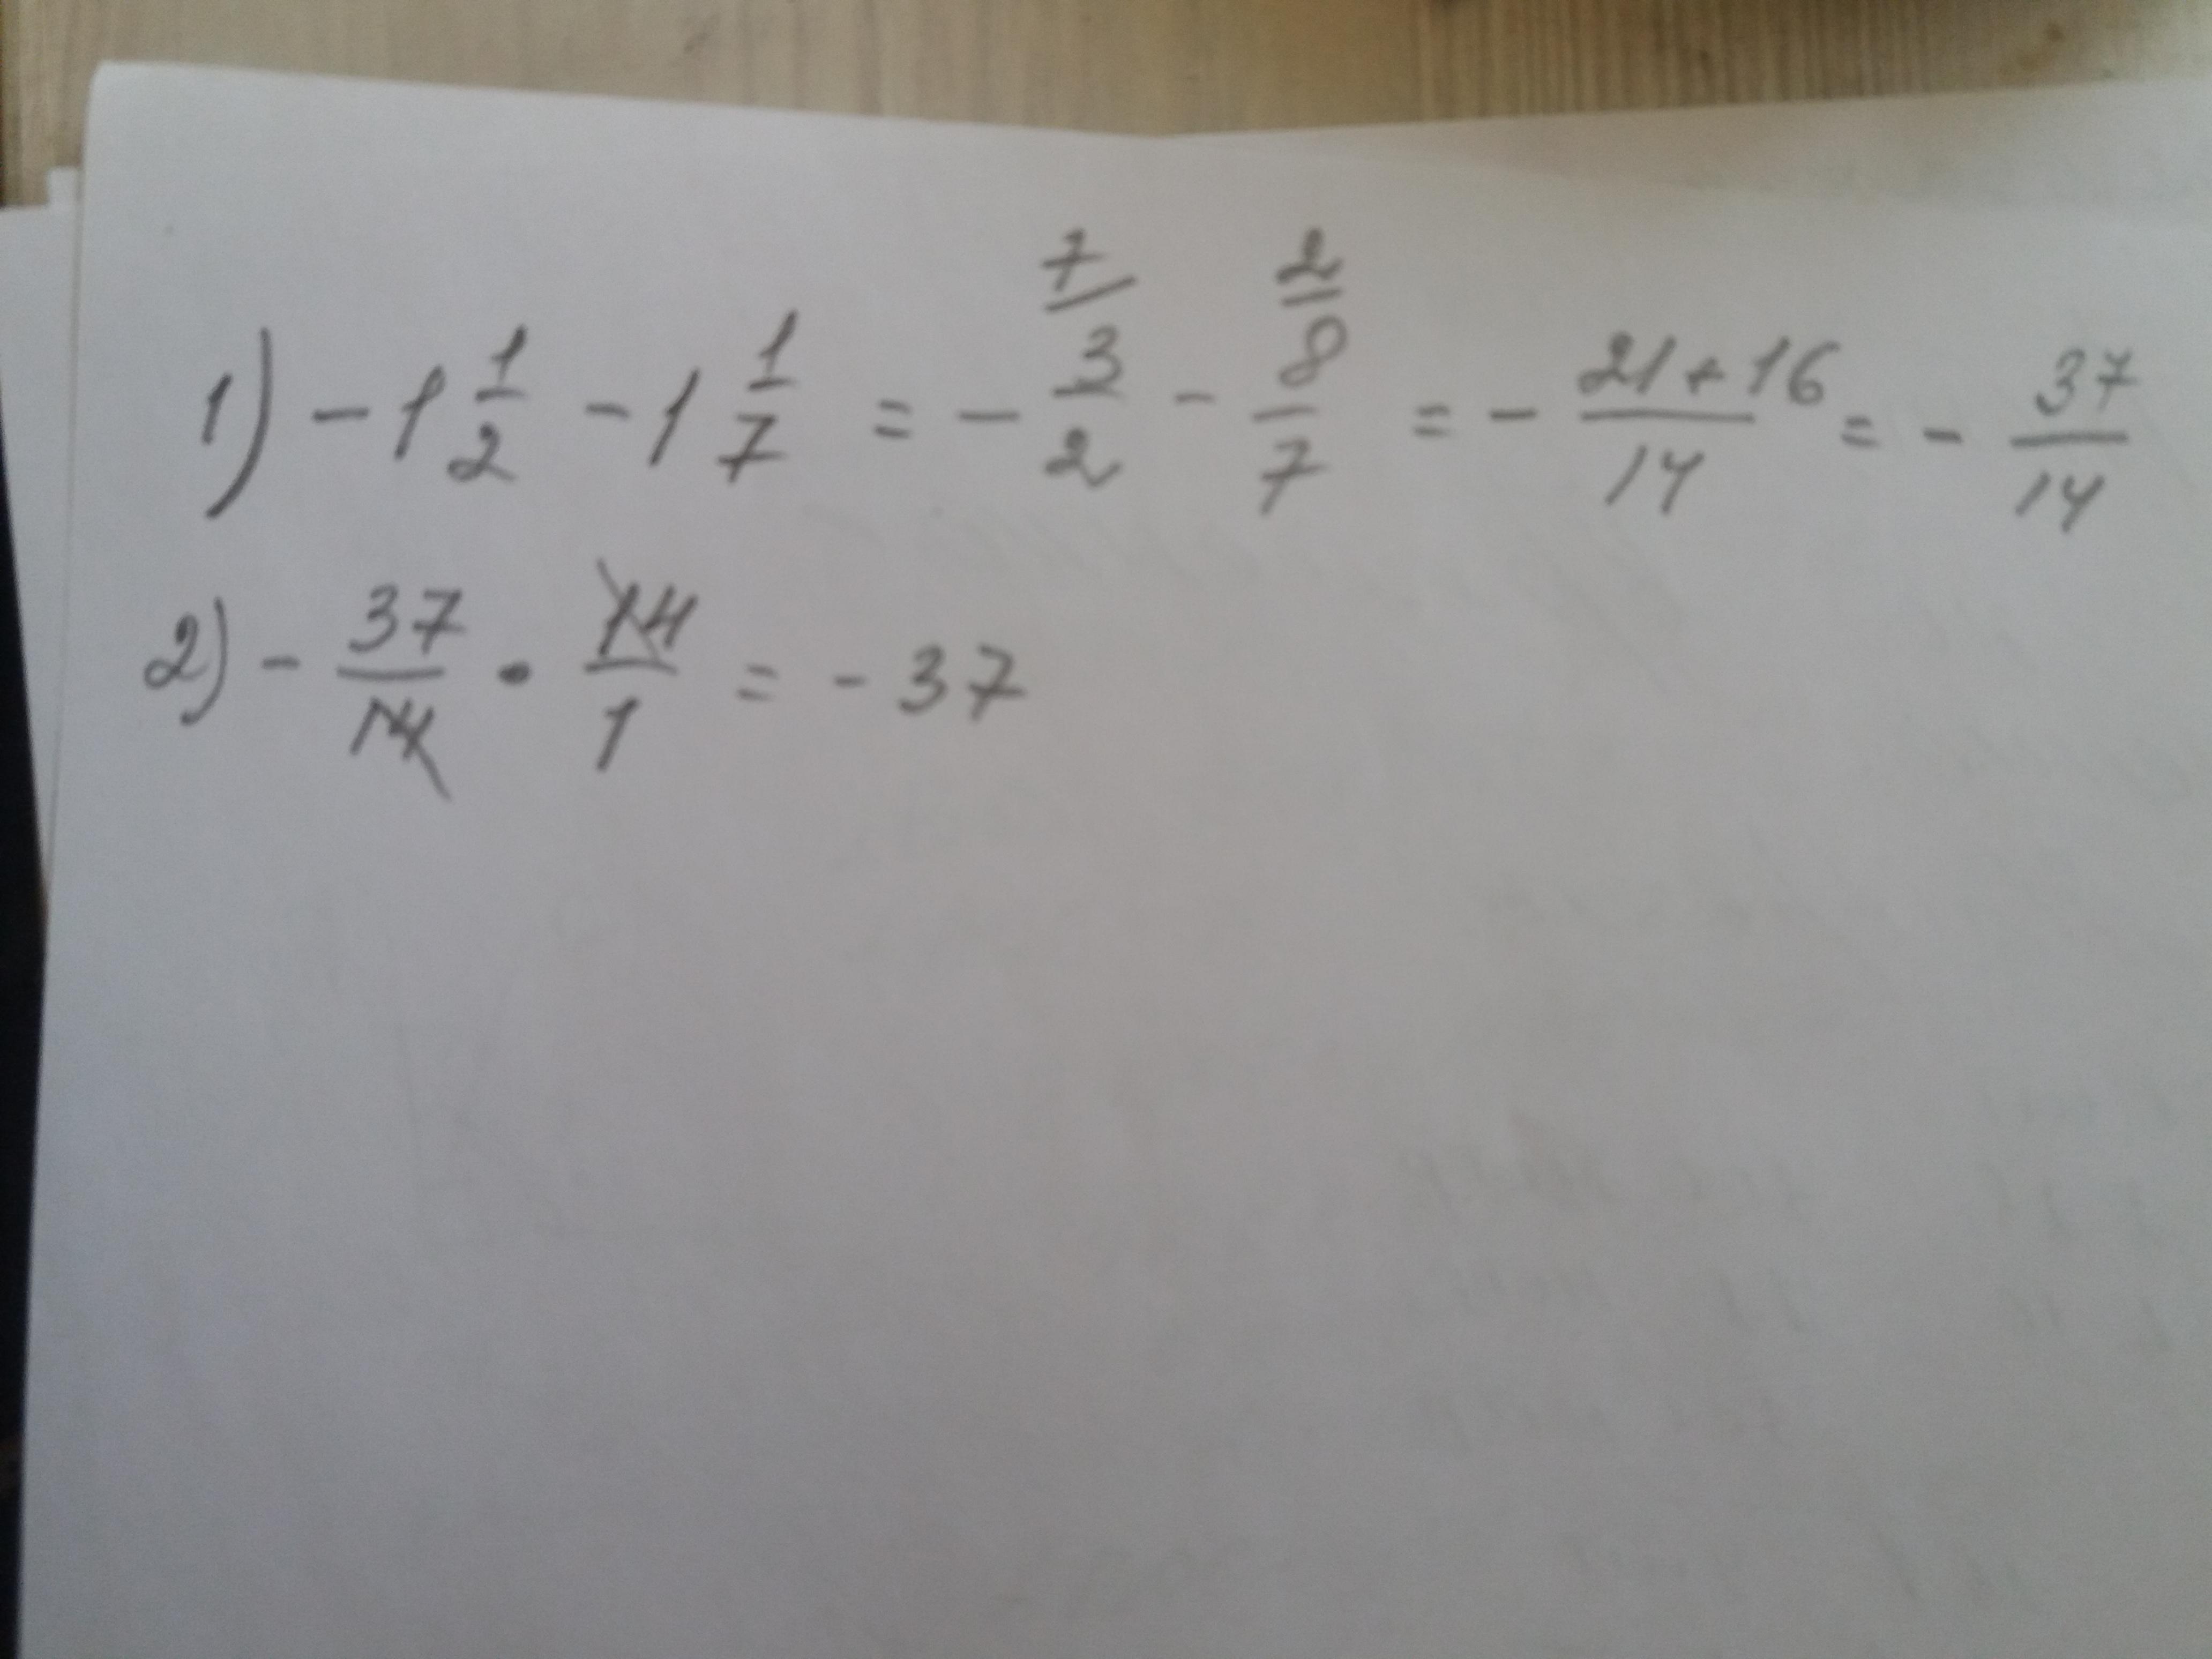 1) - 1 1/2 - 1 1/7 = - 7/ 3/2 - 2/ 8/7 = - 21+16/14 = - 37/14
2) - 37/14 • 14/1 = - 37